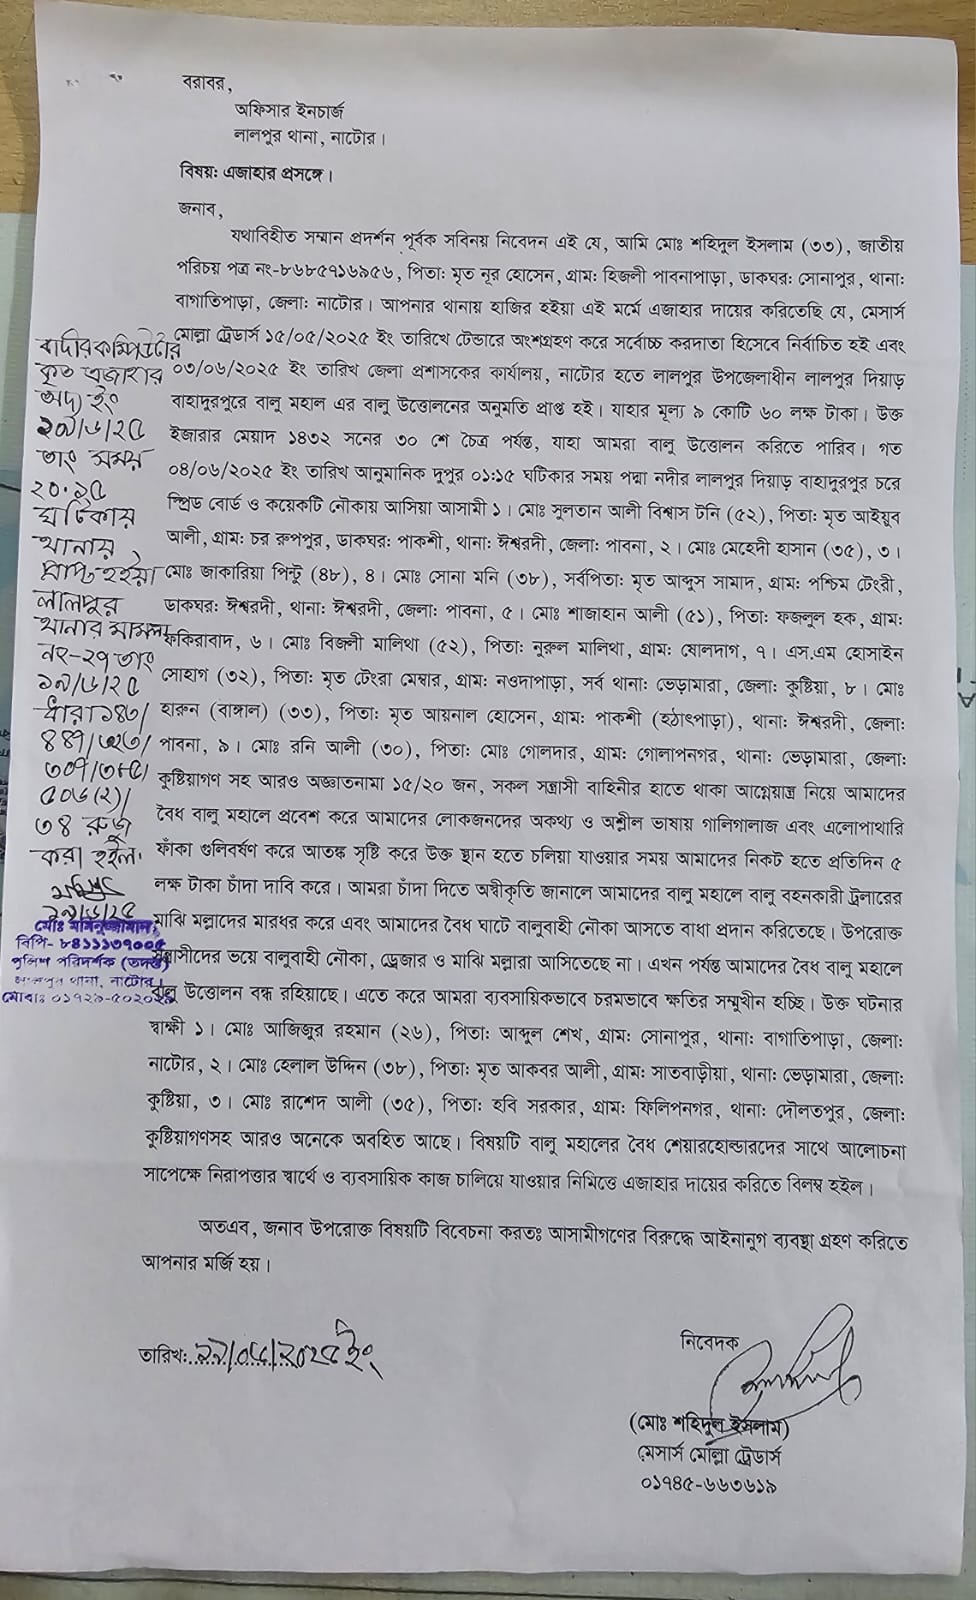 বরাবর,
অফিসার ইনচার্জ
লালপুর থানা, নাটোর।
বিষয়: এজাহার প্রসঙ্গে।
জনাব,
যথাবিহীত সম্মান প্রদর্শন পূর্বক সবিনয় নিবেদন এই যে, আমি মোঃ শহিদুল ইসলাম (৩৩), জাতীয়
পরিচয় পত্র নং-৮৬৮৫৭১৬৯৫৬, পিতা: মৃত নূর হোসেন, গ্রাম: হিজলী পাবনাপাড়া, ডাকঘর: সোনাপুর, থানা:
বাগাতিপাড়া, জেলা: নাটোর। আপনার থানায় হাজির হইয়া এই মর্মে এজাহার দায়ের করিতেছি যে, মেসার্স
মোল্লা ট্রেডার্স ১৫/০৫/২০২৫ ইং তারিখে টেন্ডারে অংশগ্রহণ করে সর্বোচ্চ করদাতা হিসেবে নির্বাচিত হই এবং
০৩/০৬/২০২৫ ইং তারিখ জেলা প্রশাসকের কার্যালয়, নাটোর হতে লালপুর উপজেলাধীন লালপুর দিয়াড়
বাহাদুরপুরে বালু মহাল এর বালু উত্তোলনের অনুমতি প্রাপ্ত হই। যাহার মূল্য ৯ কোটি ৬০ লক্ষ টাকা। উক্ত
ইজারার মেয়াদ ১৪৩২ সনের ৩০ শে চৈত্র পর্যন্ত, যাহা আমরা বালু উত্তোলন করিতে পারিব। গত
০৪/০৬/২০২৫ ইং তারিখ আনুমানিক দুপুর ০১:১৫ ঘটিকার সময় পদ্মা নদীর লালপুর দিয়াড় বাহাদুরপুর চরে
স্প্রিড বোর্ড ও কয়েকটি নৌকায় আসিয়া আসামী ১। মোঃ সুলতান আলী বিশ্বাস টনি (৫২), পিতা: মৃত আইয়ুব
আলী, গ্রাম: চর রুপপুর, ডাকঘর: পাকশী, থানা: ঈশ্বরদী, জেলা: পাবনা, ২। মোঃ মেহেদী হাসান (৩৫), ৩।
মোঃ জাকারিয়া পিন্টু (৪৮), ৪। মোঃ সোনা মনি (৩৮), সর্বপিতা: মৃত আব্দুস সামাদ, গ্রাম: পশ্চিম টেংরী,
ডাকঘর: ঈশ্বরদী, থানা: ঈশ্বরদী, জেলা: পাবনা, ৫। মোঃ শাজাহান আলী (৫১), পিতা: ফজলুল হক, গ্রাম:
ফকিরাবাদ, ৬। মোঃ বিজলী মালিথা (৫২), পিতা: নুরুল মালিথা, গ্রাম: ষোলদাগ, ৭। এস.এম হোসাইন
সোহাগ (৩২), পিতা: মৃত টেংরা মেম্বার, গ্রাম: নওদাপাড়া, সর্ব থানা: ভেড়ামারা, জেলা: কুষ্টিয়া, ৮। মোঃ
হারুন (বাঙ্গাল) (৩৩), পিতা: মৃত আয়নাল হোসেন, গ্রাম: পাকশী (হঠাৎপাড়া), থানা: ঈশ্বরদী, জেলা:
পাবনা, ৯। মোঃ রনি আলী (৩০), পিতা: মোঃ গোলদার, গ্রাম: গোলাপনগর, থানা: ভেড়ামারা, জেলা:
কুষ্টিয়াগণ সহ আরও অজ্ঞাতনামা ১৫/২০ জন, সকল সন্ত্রাসী বাহিনীর হাতে থাকা আগ্নেয়াস্ত্র নিয়ে আমাদের
বৈধ বালু মহালে প্রবেশ করে আমাদের লোকজনদের অকথ্য ও অশ্লীল ভাষায় গালিগালাজ এবং এলোপাথারি
ফাঁকা গুলিবর্ষণ করে আতঙ্ক সৃষ্টি করে উক্ত স্থান হতে চলিয়া যাওয়ার সময় আমাদের নিকট হতে প্রতিদিন ৫
লক্ষ টাকা চাঁদা দাবি করে। আমরা চাঁদা দিতে অস্বীকৃতি জানালে আমাদের বালু মহালে বালু বহনকারী ট্রলারের
মাঝি মল্লাদের মারধর করে এবং আমাদের বৈধ ঘাটে বালুবাহী নৌকা আসতে বাধা প্রদান করিতেছে। উপরোক্ত
সন্ত্রাসীদের ভয়ে বালুবাহী নৌকা, ড্রেজার ও মাঝি মল্লারা আসিতেছে না। এখন পর্যন্ত আমাদের বৈধ বালু মহালে
বালু উত্তোলন বন্ধ রহিয়াছে। এতে করে আমরা ব্যবসায়িকভাবে চরমভাবে ক্ষতির সম্মুখীন হচ্ছি। উক্ত ঘটনার
স্বাক্ষী ১। মোঃ আজিজুর রহমান (২৬), পিতা: আব্দুল শেখ, গ্রাম: সোনাপুর, থানা: বাগাতিপাড়া, জেলা:
নাটোর, ২। মোঃ হেলাল উদ্দিন (৩৮), পিতা: মৃত আকবর আলী, গ্রাম: সাতবাড়ীয়া, থানা: ভেড়ামারা, জেলা:
কুষ্টিয়া, ৩। মোঃ রাশেদ আলী (৩৫), পিতা: হবি সরকার, গ্রাম: ফিলিপনগর, থানা: দৌলতপুর, জেলা:
কুষ্টিয়াগণসহ আরও অনেকে অবহিত আছে। বিষয়টি বালু মহালের বৈধ শেয়ারহোল্ডারদের সাথে আলোচনা
সাপেক্ষে নিরাপত্তার স্বার্থে ও ব্যবসায়িক কাজ চালিয়ে যাওয়ার নিমিত্তে এজাহার দায়ের করিতে বিলম্ব হইল।
অতএব, জনাব উপরোক্ত বিষয়টি বিবেচনা করতঃ আসামীগণের বিরুদ্ধে আইনানুগ ব্যবস্থা গ্রহণ করিতে
আপনার মর্জি হয়।
তারিখ: ১৯/০৬/২০২৫ ইং
নিবেদক
(মোঃ শহিদুল ইসলাম)
মেসার্স মোল্লা ট্রেডার্স
০১৭৪৫-৬৬৩৬১৯
বাদীর কম্পিউটার
কৃত এজাহার
অদ্য ইং
১৯/৬/২৫
তাং সময়
২০.১৫
ঘটিকায়
থানায়
প্রাপ্ত হইয়া
লালপুর
থানার মামলা
নং-২৭ তাং
১৯/৬/২৫
ধারা ১৪৩/
৪৪৭/৩২৩/
৩০৭/৩৮৫/
৫০৬(২)/
৩৪ রুজু
করা হইল।
১৯/৬/২৫
মোঃ মমিনুজ্জামান
বিপি- ৮৪১১১৩৭০০৫
পুলিশ পরিদর্শক (তদন্ত)
লালপুর থানা, নাটোর।